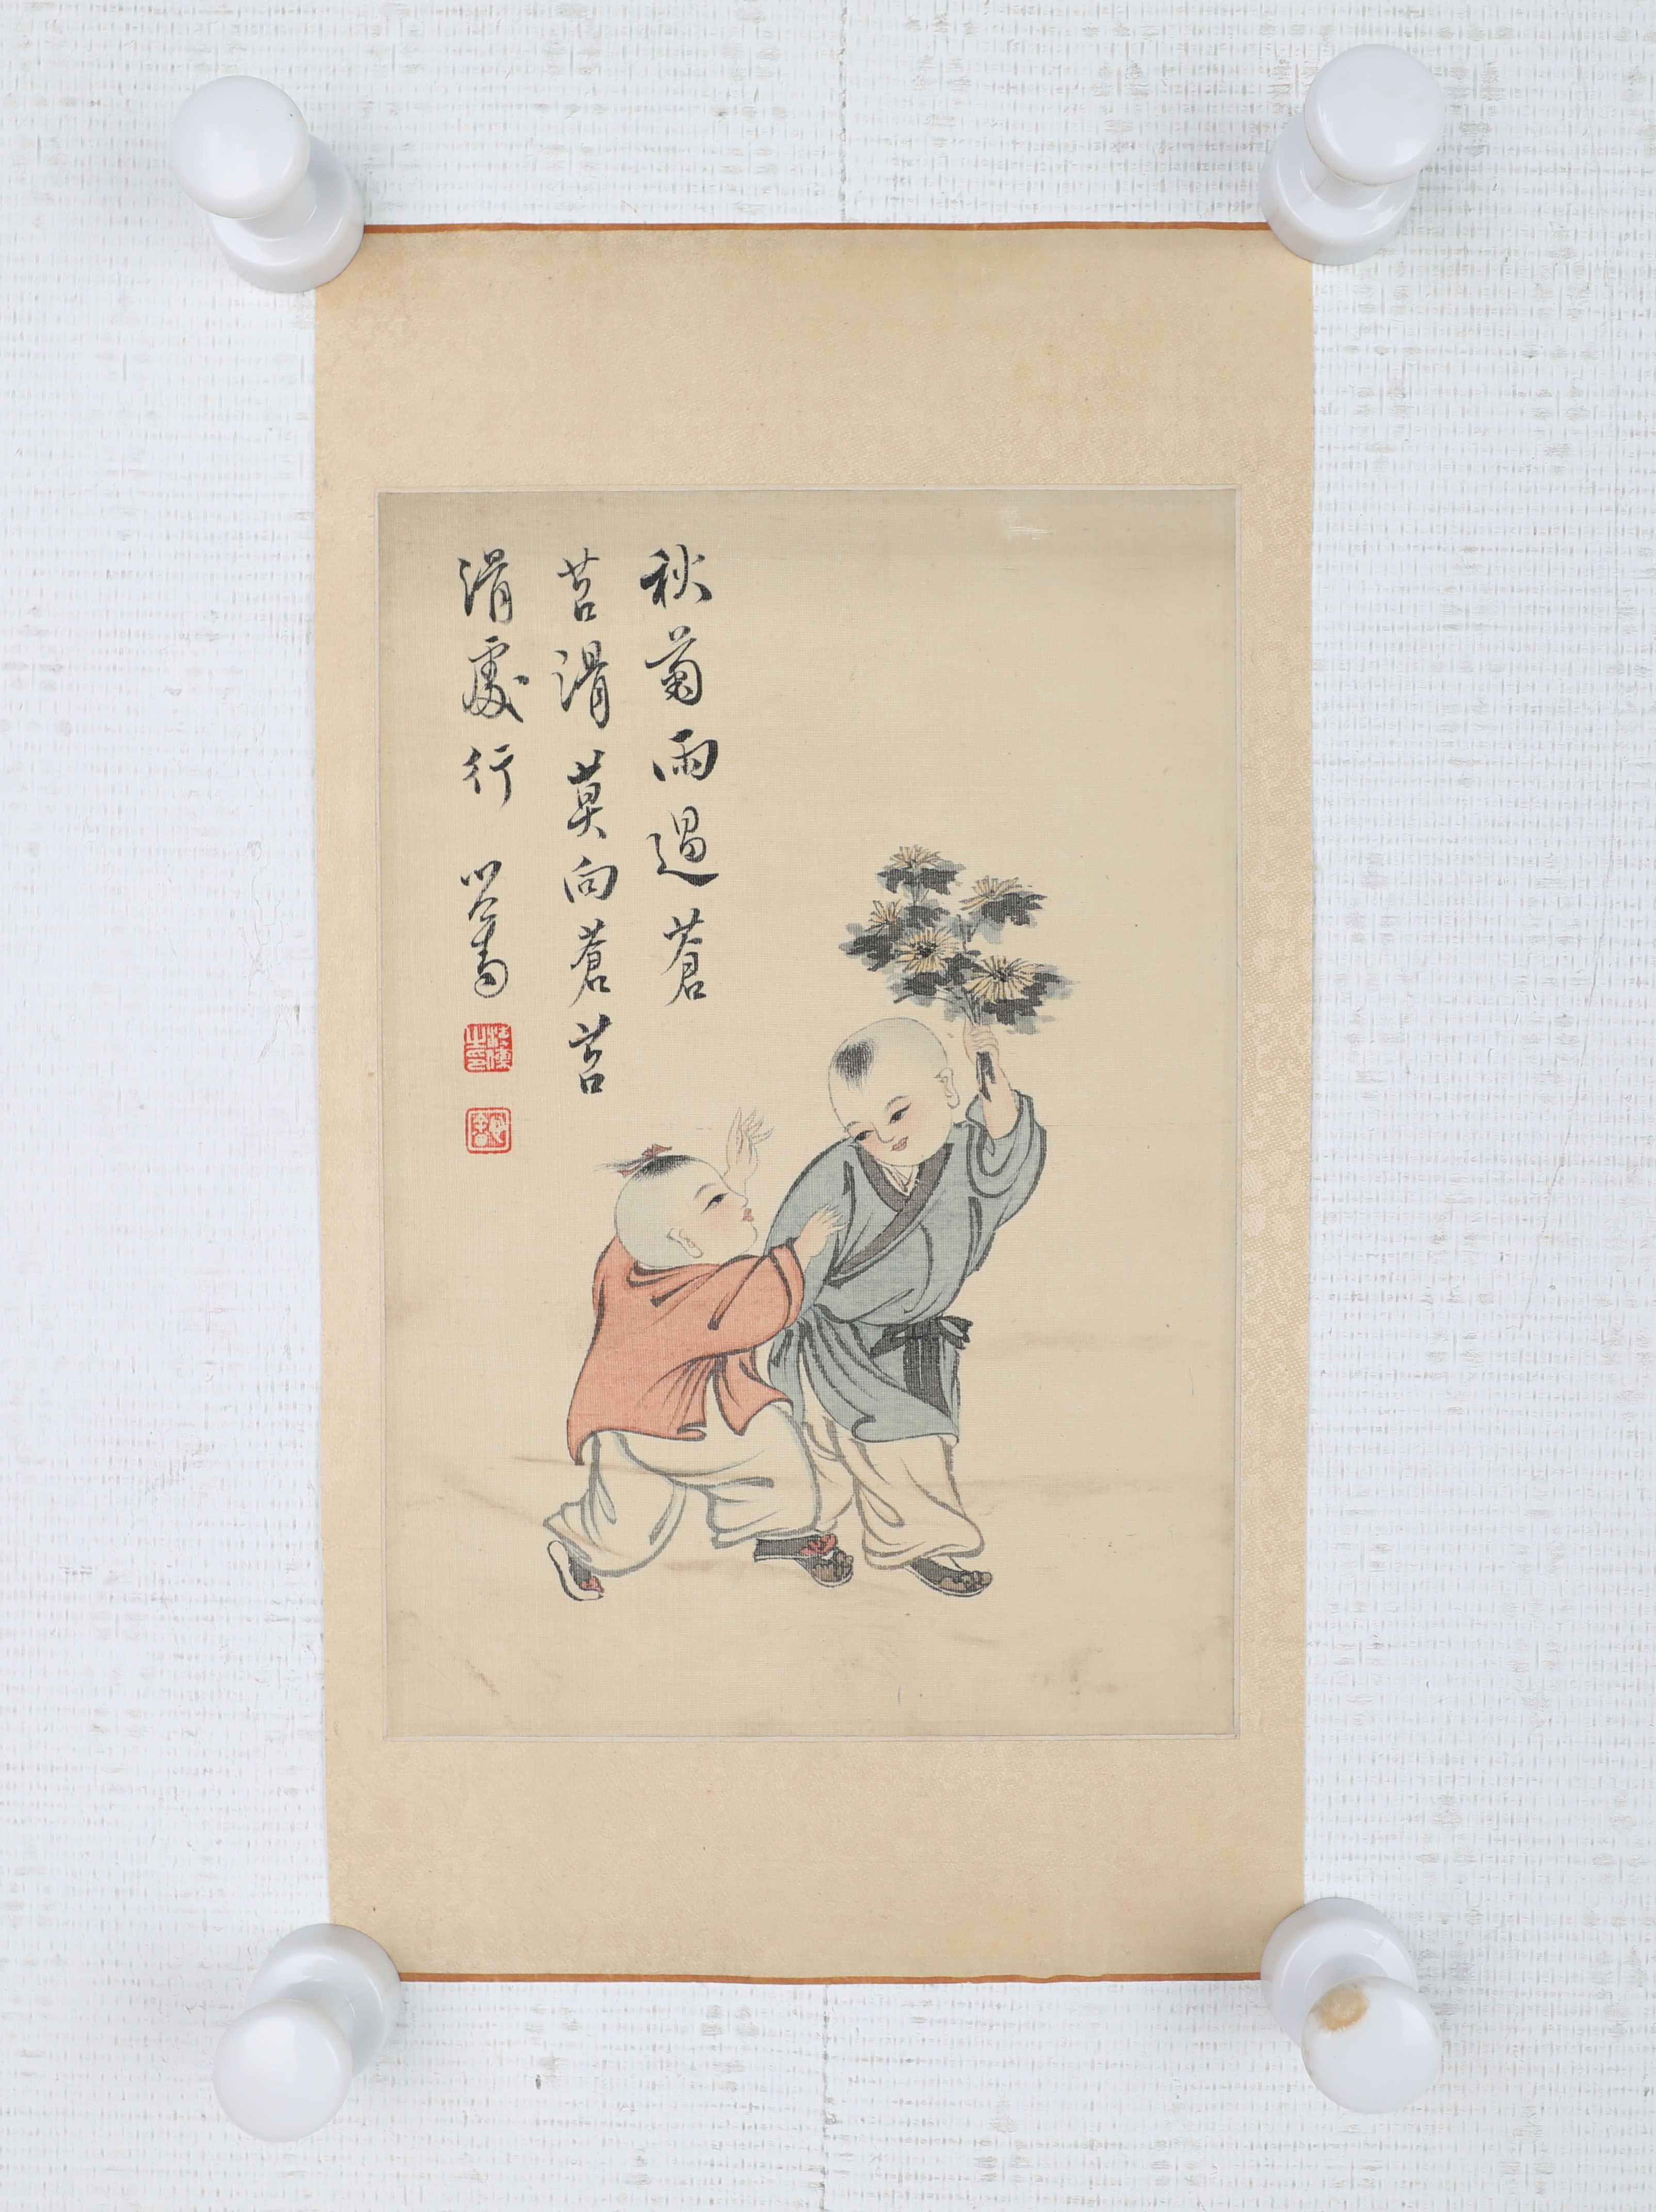 秋菊雨過蒼
苔滑莫向蒼苔
滑處行 心畬